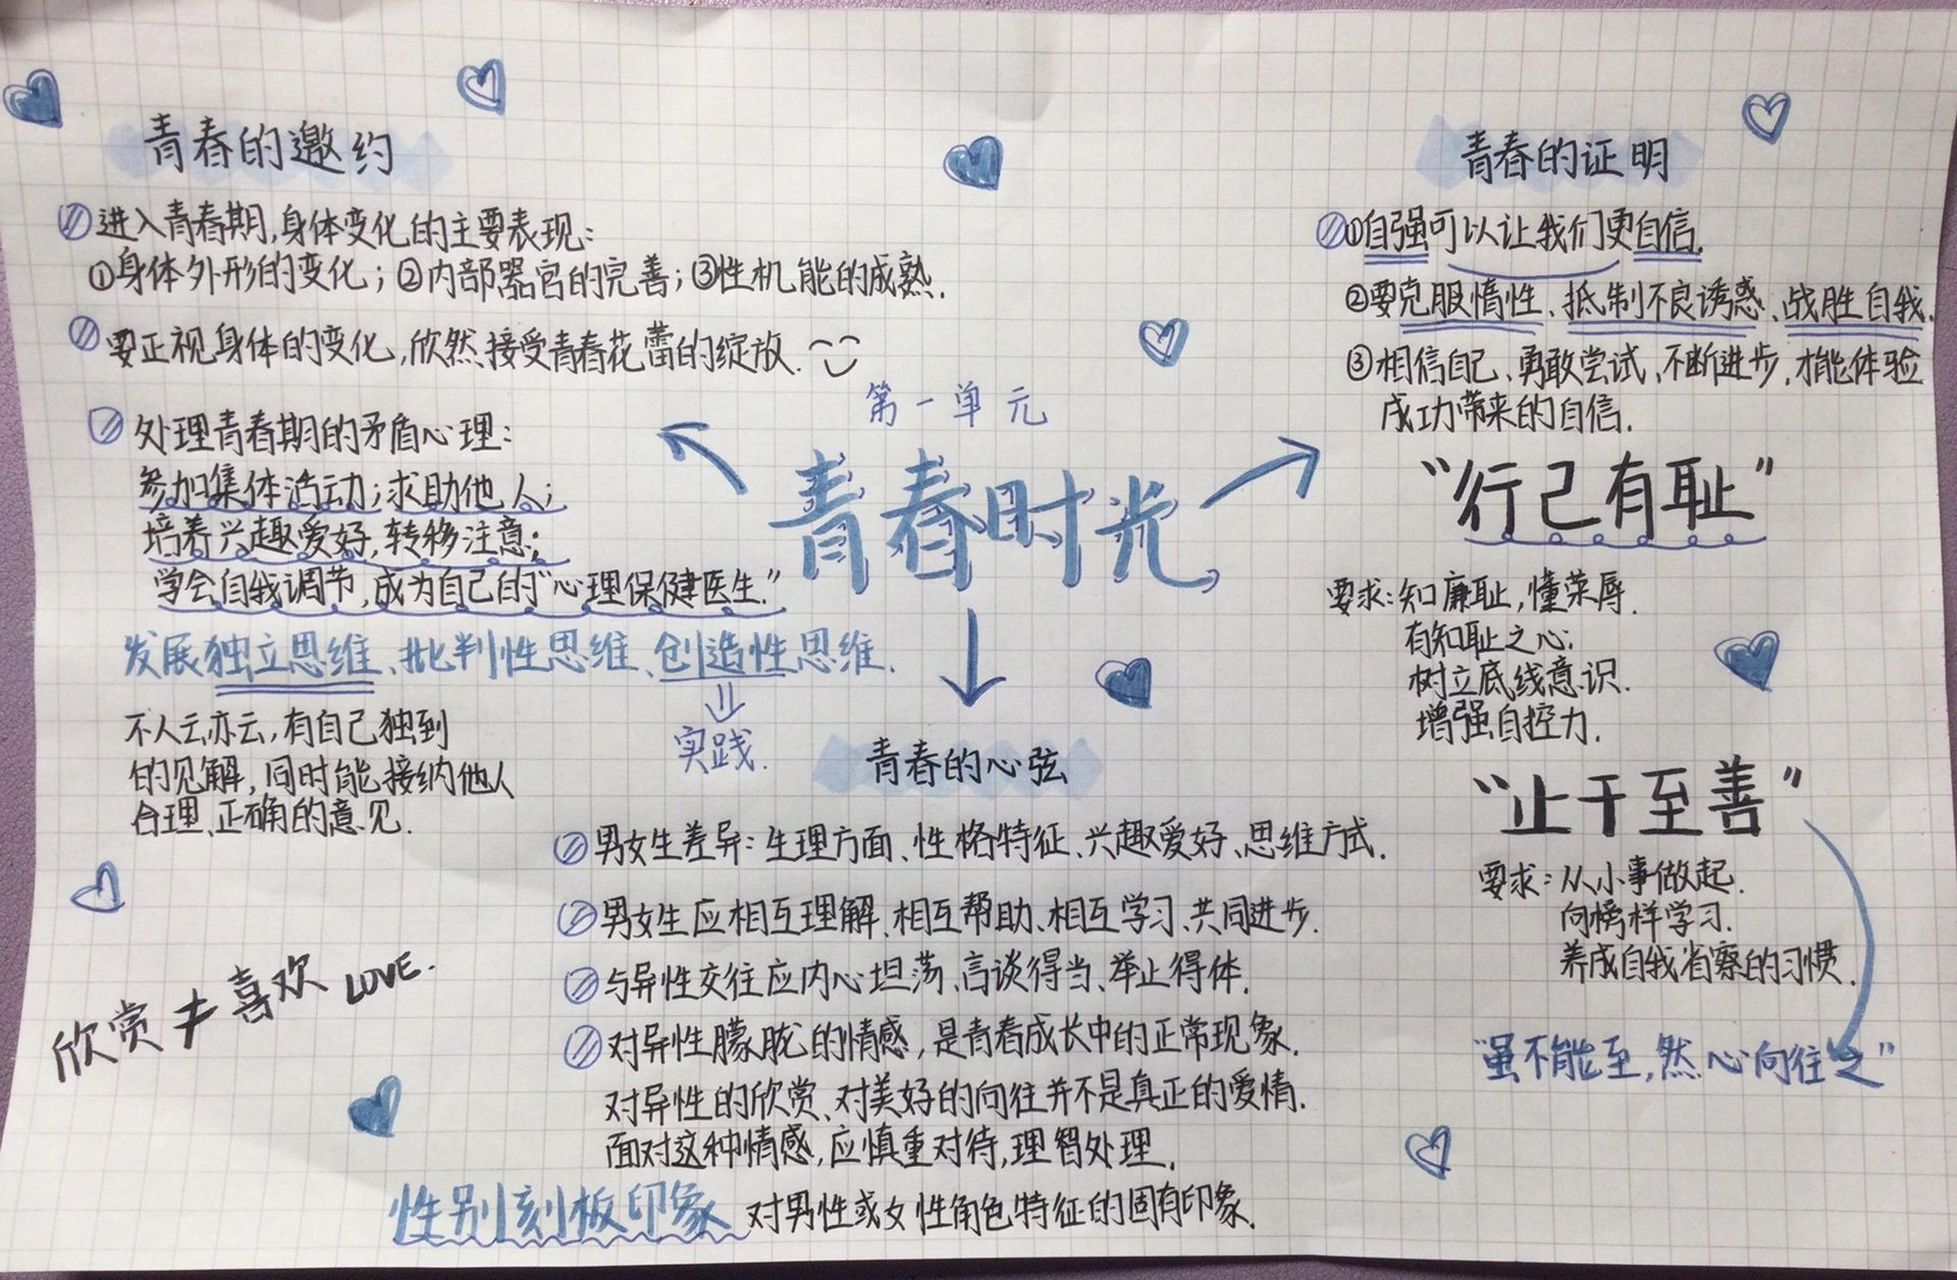 第一单元
青春时光
青春的邀约
进入青春期,身体变化的主要表现:
①身体外形的变化;②内部器官的完善;③性机能的成熟.
要正视身体的变化,欣然接受青春花蕾的绽放.
处理青春期的矛盾心理:
参加集体活动;求助他人;
培养兴趣爱好,转移注意;
学会自我调节,成为自己的“心理保健医生.”
发展独立思维、批判性思维、创造性思维.
实践.
不人云亦云,有自己独到
的见解,同时能接纳他人
合理、正确的意见.
欣赏≠喜欢 LOVE.
青春的心弦
男女生差异:生理方面、性格特征、兴趣爱好、思维方式.
男女生应相互理解、相互帮助、相互学习、共同进步.
与异性交往应内心坦荡、言谈得当、举止得体.
对异性朦胧的情感,是青春成长中的正常现象.
对异性的欣赏、对美好的向往并不是真正的爱情.
面对这种情感,应慎重对待,理智处理.
性别刻板印象 对男性或女性角色特征的固有印象.
青春的证明
①自强可以让我们更自信.
②要克服惰性、抵制不良诱惑、战胜自我.
③相信自己、勇敢尝试、不断进步,才能体验
成功带来的自信.
“行己有耻”
要求:知廉耻,懂荣辱.
有知耻之心;
树立底线意识.
增强自控力.
“止于至善”
要求:从小事做起.
向榜样学习.
养成自我省察的习惯.
“虽不能至,然心向往之”